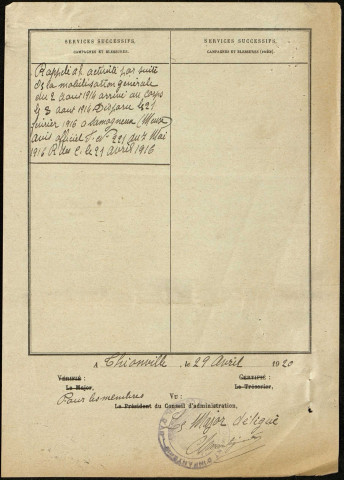 SERVICES SUCCESSIFS.
CAMPAGNES ET BLESSURES.
Rappelé à l'activité par suite
de la mobilisation générale
du 2 août 1914 arrivé au corps
le 3 août 1914 Disparu le 21
février 1916 à Samogneux (Meuse
avis officiel 221 du 7 Mai
1916 R des C. le 21 avril 1916
SERVICES SUCCESSIFS.
CAMPAGNES ET BLESSURES (SUITE)
A Thionville, le 29 Avril 1920
Vérifié :
Le Major,
Certifié :
Le Trésorier,
Pour les membres
Vu :
Le Président du Conseil d'administration,
Le Major délégué